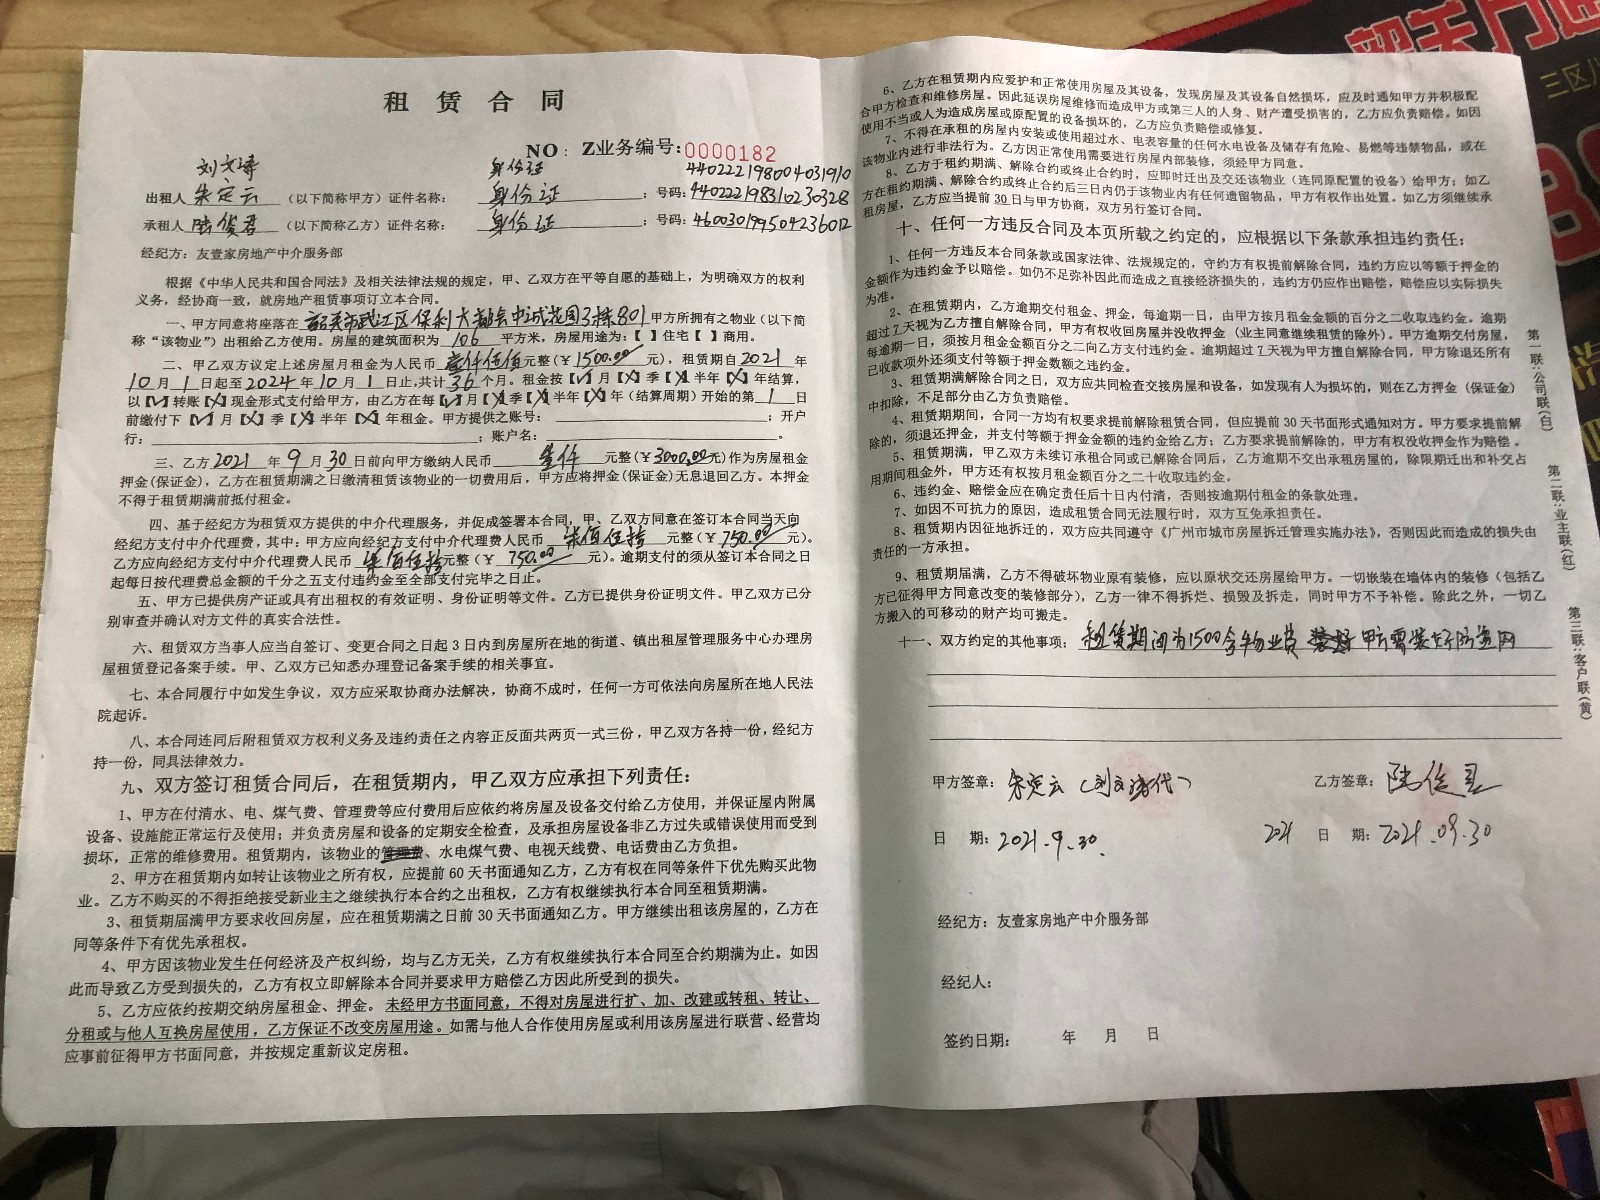 租赁合同
NO：Z业务编号:0000182
刘文涛 身份证 440222198004031910
出租人 朱定云 （以下简称甲方）证件名称： 身份证 ；号码: 440222198310230328
承租人 陆俊君 （以下简称乙方）证件名称： 身份证 ；号码: 460030199504236012
经纪方：友壹家房地产中介服务部
根据《中华人民共和国合同法》及相关法律法规的规定，甲、乙双方在平等自愿的基础上，为明确双方的权利
义务，经协商一致，就房地产租赁事项订立本合同。
一、甲方同意将座落在 韶关市武江区保利大都会中诚花园3栋801 甲方所拥有之物业（以下简
称“该物业”）出租给乙方使用。房屋的建筑面积为 106 平方米，房屋用途为：【 】住宅【 】商用。
二、甲乙双方议定上述房屋月租金为人民币 壹仟伍佰 元整（￥ 1500.00 元），租赁期自 2021 年
10 月 1 日起至 2024 年 10 月 1 日止,共计 36 个月。租金按【√】月【X】季【X】半年【X】年结算，
以【√】转账【X】现金形式支付给甲方，由乙方在每【√】月【X】季【X】半年【X】年（结算周期）开始的第 1 日
前缴付下【√】月【X】季【X】半年【X】年租金。甲方提供之账号： ；开户
行： ；账户名： 。
三、乙方 2021 年 9 月 30 日前向甲方缴纳人民币 叁仟 元整（￥3000.00元）作为房屋租金
押金(保证金)，乙方在租赁期满之日缴清租赁该物业的一切费用后，甲方应将押金(保证金)无息退回乙方。本押金
不得于租赁期满前抵付租金。
四、基于经纪方为租赁双方提供的中介代理服务，并促成签署本合同，甲、乙双方同意在签订本合同当天向
经纪方支付中介代理费，其中：甲方应向经纪方支付中介代理费人民币 柒佰伍拾 元整（￥ 750.00 元）。
乙方应向经纪方支付中介代理费人民币 柒佰伍拾 元整（￥ 750.00 元）。逾期支付的须从签订本合同之日
起每日按代理费总金额的千分之五支付违约金至全部支付完毕之日止。
五、甲方已提供房产证或具有出租权的有效证明、身份证明等文件。乙方已提供身份证明文件。甲乙双方已分
别审查并确认对方文件的真实合法性。
六、租赁双方当事人应当自签订、变更合同之日起3日内到房屋所在地的街道、镇出租屋管理服务中心办理房
屋租赁登记备案手续。甲、乙双方已知悉办理登记备案手续的相关事宜。
七、本合同履行中如发生争议，双方应采取协商办法解决，协商不成时，任何一方可依法向房屋所在地人民法
院起诉。
八、本合同连同后附租赁双方权利义务及违约责任之内容正反面共两页一式三份，甲乙双方各持一份，经纪方
持一份，同具法律效力。
九、双方签订租赁合同后，在租赁期内，甲乙双方应承担下列责任：
1、甲方在付清水、电、煤气费、管理费等应付费用后应依约将房屋及设备交付给乙方使用，并保证屋内附属
设备、设施能正常运行及使用；并负责房屋和设备的定期安全检查，及承担房屋设备非乙方过失或错误使用而受到
损坏，正常的维修费用。租赁期内，该物业的管理费、水电煤气费、电视天线费、电话费由乙方负担。
2、甲方在租赁期内如转让该物业之所有权，应提前60天书面通知乙方，乙方有权在同等条件下优先购买此物
业。乙方不购买的不得拒绝接受新业主之继续执行本合约之出租权，乙方有权继续执行本合同至租赁期满。
3、租赁期届满甲方要求收回房屋，应在租赁期满之日前30天书面通知乙方。甲方继续出租该房屋的，乙方在
同等条件下有优先承租权。
4、甲方因该物业发生任何经济及产权纠纷，均与乙方无关，乙方有权继续执行本合同至合约期满为止。如因
此而导致乙方受到损失的，乙方有权立即解除本合同并要求甲方赔偿乙方因此所受到的损失。
5、乙方应依约按期交纳房屋租金、押金。未经甲方书面同意，不得对房屋进行扩、加、改建或转租、转让、
分租或与他人互换房屋使用，乙方保证不改变房屋用途。如需与他人合作使用房屋或利用该房屋进行联营、经营均
应事前征得甲方书面同意，并按规定重新议定房租。
6、乙方在租赁期内应爱护和正常使用房屋及其设备，发现房屋及其设备自然损坏，应及时通知甲方并积极配
合甲方检查和维修房屋。因此延误房屋维修而造成甲方或第三人的人身、财产遭受损害的，乙方应负责赔偿。如因
使用不当或人为造成房屋或原配置的设备损坏的，乙方应负责赔偿或修复。
7、不得在承租的房屋内安装或使用超过水、电表容量的任何水电设备及储存有危险、易燃等违禁物品，或在
该物业内进行非法行为。乙方因正常使用需要进行房屋内部装修，须经甲方同意。
8、乙方于租约期满、解除合约或终止合约时，应即时迁出及交还该物业（连同原配置的设备）给甲方；如乙
方在租约期满、解除合约或终止合约后三日内仍于该物业内有任何遗留物品，甲方有权作出处置。如乙方须继续承
租房屋，乙方应当提前30日与甲方协商，双方另行签订合同。
十、任何一方违反合同及本页所载之约定的，应根据以下条款承担违约责任：
1、任何一方违反本合同条款或国家法律、法规规定的，守约方有权提前解除合同，违约方应以等额于押金的
金额作为违约金予以赔偿。如仍不足弥补因此而造成之直接经济损失的，违约方仍应作出赔偿，赔偿应以实际损失
为准。
2、在租赁期内，乙方逾期交付租金、押金，每逾期一日，由甲方按月租金金额的百分之二收取违约金。逾期
超过7天视为乙方擅自解除合同，甲方有权收回房屋并没收押金（业主同意继续租赁的除外）。甲方逾期交付房屋，
每逾期一日，须按月租金金额百分之二向乙方支付违约金。逾期超过7天视为甲方擅自解除合同，甲方除退还所有
已收款项外还须支付等额于押金数额之违约金。
3、租赁期满解除合同之日，双方应共同检查交接房屋和设备，如发现有人为损坏的，则在乙方押金（保证金）
中扣除，不足部分由乙方负责赔偿。
4、租赁期期间，合同一方均有权要求提前解除租赁合同，但应提前30天书面形式通知对方。甲方要求提前解
除的，须退还押金，并支付等额于押金金额的违约金给乙方；乙方要求提前解除的，甲方有权没收押金作为赔偿。
5、租赁期满，甲乙双方未续订承租合同或已解除合同后，乙方逾期不交出承租房屋的，除限期迁出和补交占
用期间租金外，甲方还有权按月租金额百分之二十收取违约金。
6、违约金、赔偿金应在确定责任后十日内付清，否则按逾期付租金的条款处理。
7、如因不可抗力的原因，造成租赁合同无法履行时，双方互免承担责任。
8、租赁期内因征地拆迁的，双方应共同遵守《广州市城市房屋拆迁管理实施办法》，否则因此而造成的损失由
责任的一方承担。
9、租赁期届满，乙方不得破坏物业原有装修，应以原状交还房屋给甲方。一切嵌装在墙体内的装修（包括乙
方已征得甲方同意改变的装修部分），乙方一律不得拆烂、损毁及拆走，同时甲方不予补偿。除此之外，一切乙
方搬入的可移动的财产均可搬走。
十一、双方约定的其他事项： 租赁期间为1500含物业费 甲方需装好防盗网
甲方签章： 朱定云（刘文涛代） 乙方签章：
日 期： 2021.9.30. 2021 日 期： 2021.09.30
经纪方：友壹家房地产中介服务部
经纪人：
签约日期： 年 月 日
第一联：公司联（白）
第二联：业主联（红）
第三联：客户联（黄）
韶关
三区八